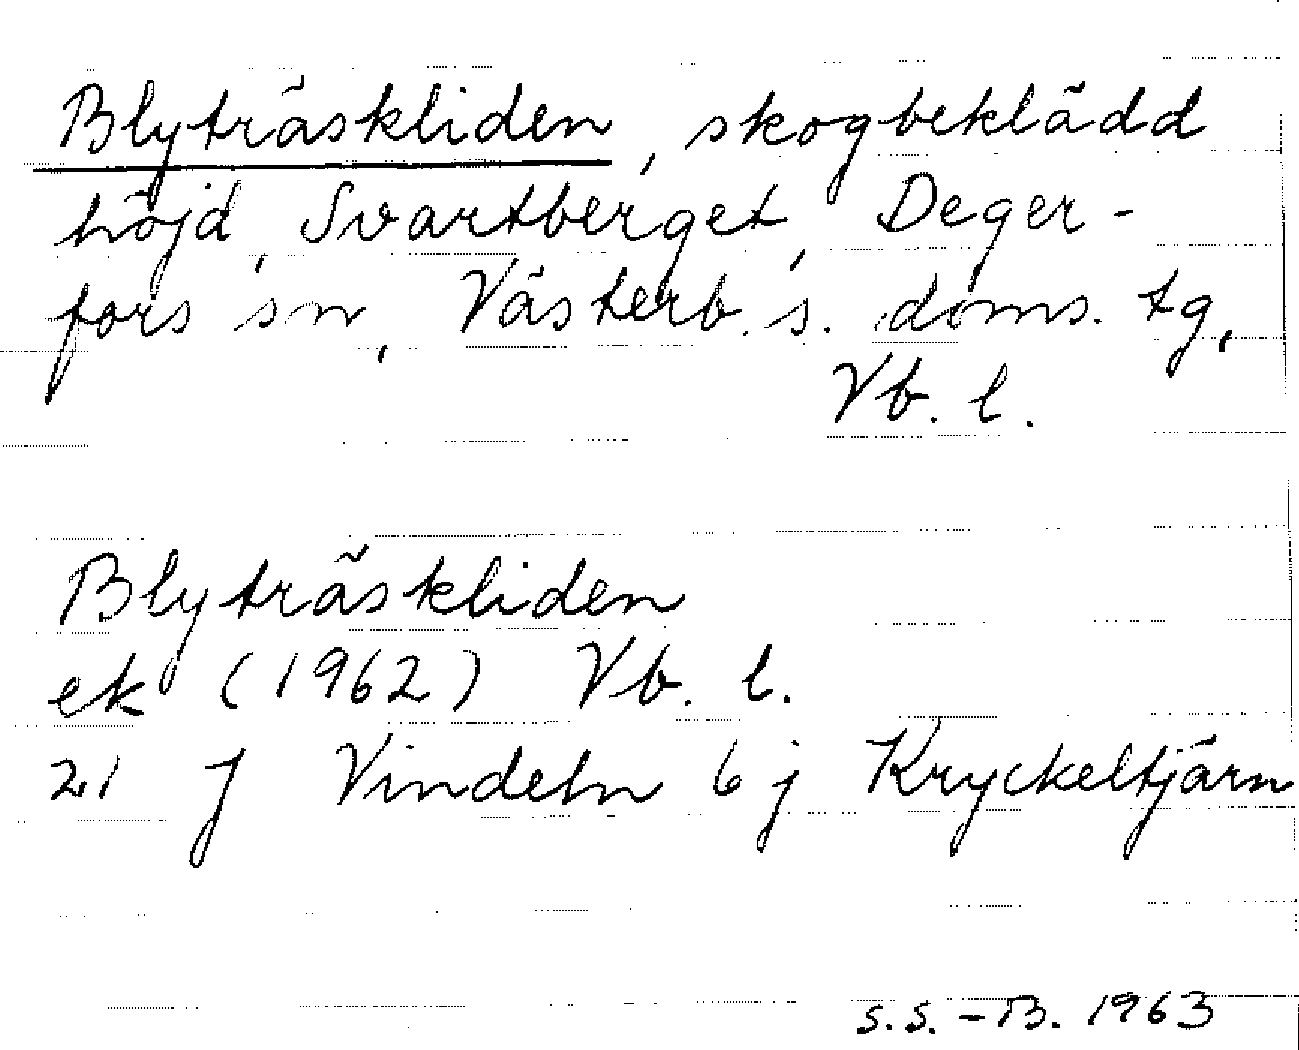 Blyträskliden, skogbeklädd
höjd, Svartberget, Deger-
fors sn, Västerb. s. doms. tg,
Vb. l.
Blyträskliden
ek (1962) Vb. l.
21 J Vindeln 6 j Kryckeltjärn
S.S.-B. 1963